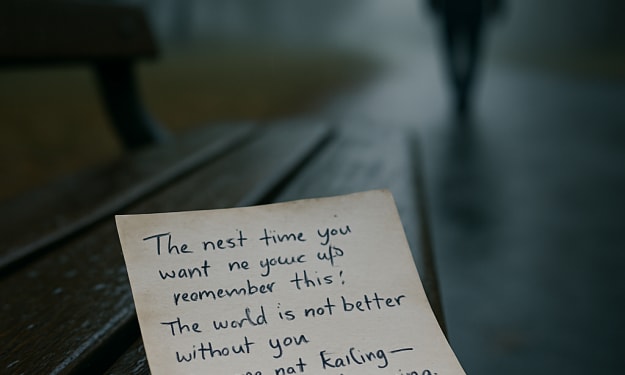 The nest time you
want ne up
reomember this:
The world is not better
without you
nat kailing—